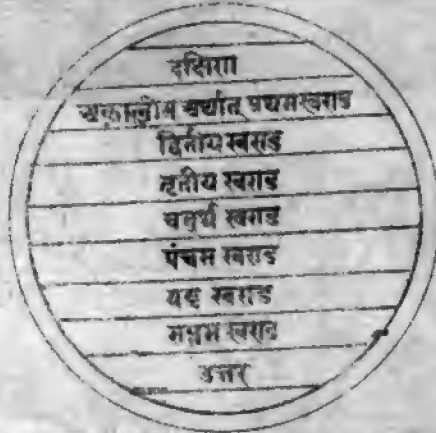 दक्षिण
अकालीम अर्थात् प्रथमखण्ड
द्वितीय खण्ड
तृतीय खण्ड
चतुर्थ खण्ड
पंचम खण्ड
षष्ठ खण्ड
सप्तम खण्ड
उत्तर